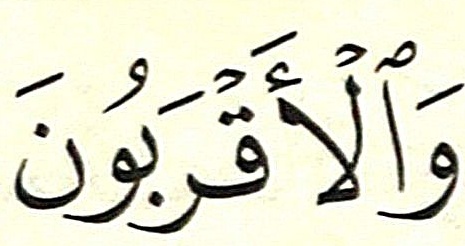 وَٱلۡأَقۡرَبُونَ